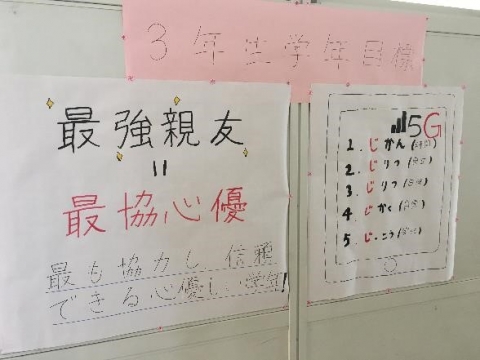 3年生学年目標
最強親友
=
最協心優
最も協力し信頼
できる心優しい学年!
5G
1. じかん(時間)
2. じりつ
3. じりつ
4. じかく(自覚)
5. じっこう